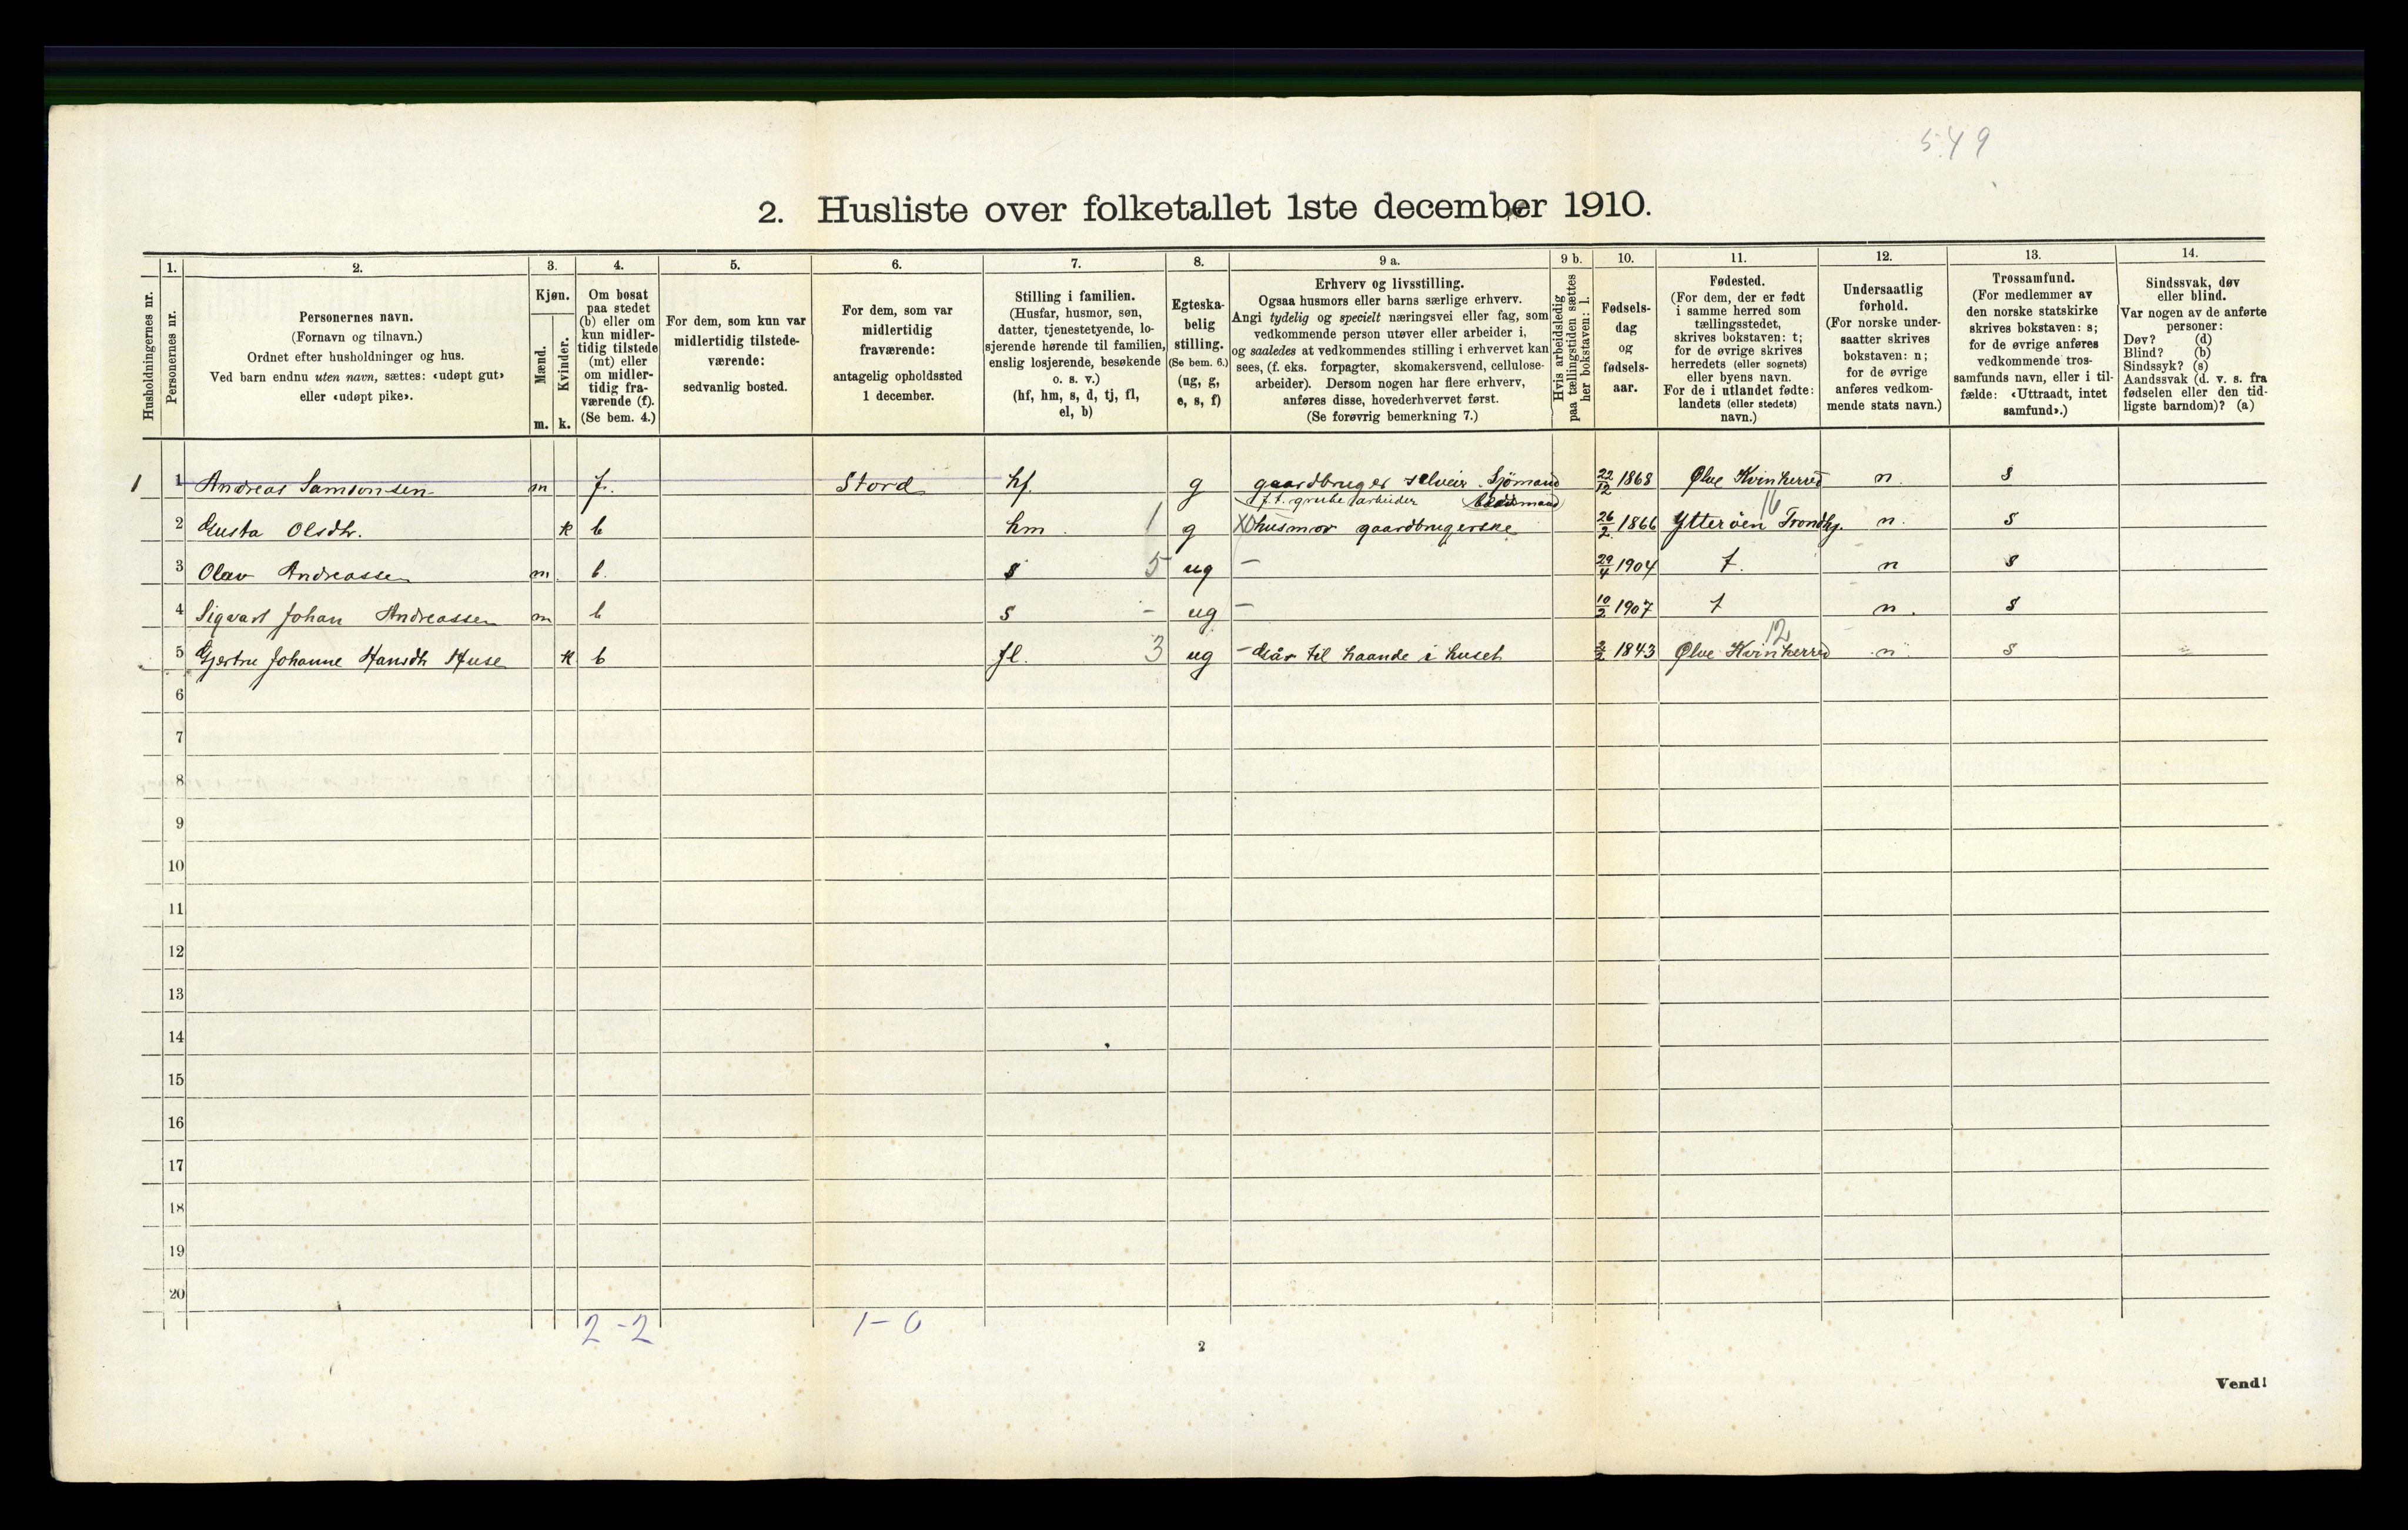 549
2. Husliste over folketallet 1ste december 1910.
Husholdningernes nr.
1. Personernes nr.
2.
Personernes navn.
(Fornavn og tilnavn.)
Ordnet efter husholdninger og hus.
Ved barn endnu uten navn, sættes: «udøpt gut»
eller «udøpt pike».
3.
Kjøn.
Mænd. Kvinder.
m. k.
4.
Om bosat
paa stedet
(b) eller om
kun midler-
tidig tilstede
(mt) eller
om midler-
tidig fra-
værende (f).
(Se bem. 4.)
5.
For dem, som kun var
midlertidig tilstede-
værende:
sedvanlig bosted.
6.
For dem, som var
midlertidig
fraværende:
antagelig opholdssted
1 december.
7.
Stilling i familien.
(Husfar, husmor, søn,
datter, tjenestetyende, lo-
sjerende hørende til familien,
enslig losjerende, besøkende
o. s. v.)
(hf, hm, s, d, tj, fl,
el, b)
8.
Egteska-
belig
stilling.
(Se bem. 6.)
(ug, g,
e, s, f)
9 a.
Erhverv og livsstilling.
Ogsaa husmors eller barns særlige erhverv.
Angi tydelig og specielt næringsvei eller fag, som
vedkommende person utøver eller arbeider i,
og saaledes at vedkommendes stilling i erhvervet kan
sees, (f. eks. forpagter, skomakersvend, cellulose-
arbeider). Dersom nogen har flere erhverv,
anføres disse, hovederhvervet først.
(Se forøvrig bemerkning 7.)
9 b.
Hvis arbeidsledig
paa tællingstiden sættes
her bokstaven: l.
10.
Fødsels-
dag
og
fødsels-
aar.
11.
Fødested.
(For dem, der er født
i samme herred som
tællingsstedet,
skrives bokstaven: t;
for de øvrige skrives
herredets (eller sognets)
eller byens navn.
For de i utlandet fødte:
landets (eller stedets)
navn.)
12.
Undersaatlig
forhold.
(For norske under-
saatter skrives
bokstaven: n;
for de øvrige
anføres vedkom-
mende stats navn.)
13.
Trossamfund.
(For medlemmer av
den norske statskirke
skrives bokstaven: s;
for de øvrige anføres
vedkommende tros-
samfunds navn, eller i til-
fælde: «Uttraadt, intet
samfund».)
14.
Sindssvak, døv
eller blind.
Var nogen av de anførte
personer:
Døv? (d)
Blind? (b)
Sindssyk? (s)
Aandssvak (d. v. s. fra
fødselen eller den tid-
ligste barndom)? (a)
1 1 Andreas Samsonsen m f. Stord hf. g gaardbruger selveier Sjømand 22/12 1868 Ølve Kvinherred n. s
f.t. grubearbeider
16
2 Gusta Olsdtr. k b hm. 1 g husmor gaardbrugerske 26/2 1866 Ytterøen Trondhj. n. s
3 Olav Andreassen m. b. s 5 ug – 29/4 1904 t. n s
4 Sigvart Johan Andreassen m b s – ug – 10/2 1907 t n. s
12
5 Gjertru Johanne Hansdtr Huse k b fl. 3 ug – Går til haande i huset 2/2 1843 Ølve Kvinherred n s
6
7
8
9
10
11
12
13
14
15
16
17
18
19
20
2-2 1-0
2
Vend!